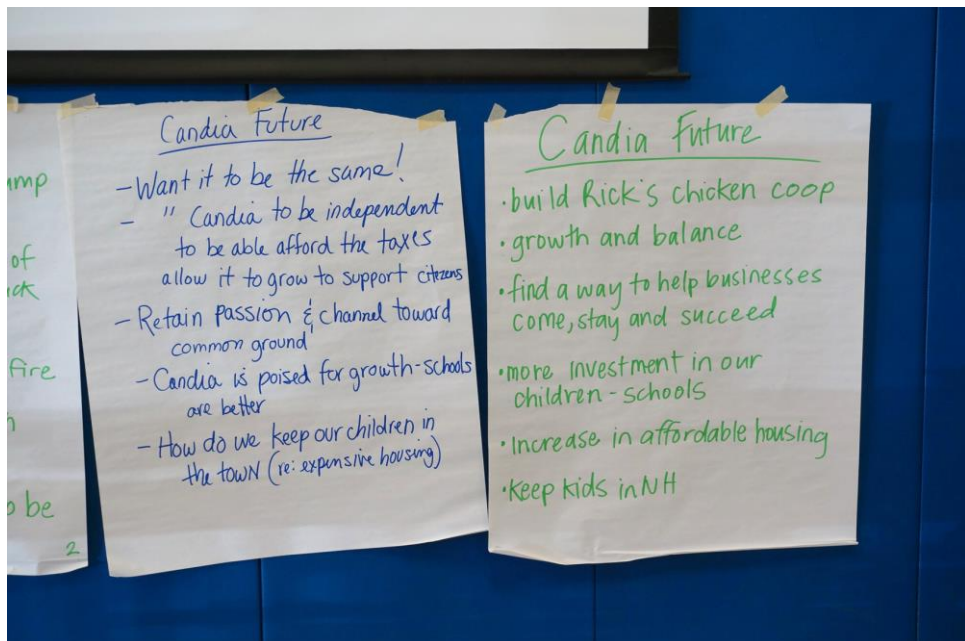 ump
of
ck
fire
be
2
Candia Future
- Want it to be the same!
- " Candia to be independent
to be able afford the taxes
allow it to grow to support citezens
- Retain passion & channel toward
common ground
- Candia is poised for growth - schools
are better
- How do we keep our children in
the town (re: expensive housing)
Candia Future
• build Rick's chicken coop
• growth and balance
• find a way to help businesses
come, stay and succeed
• more investment in our
children - schools
• Increase in affordable housing
• Keep kids in NH